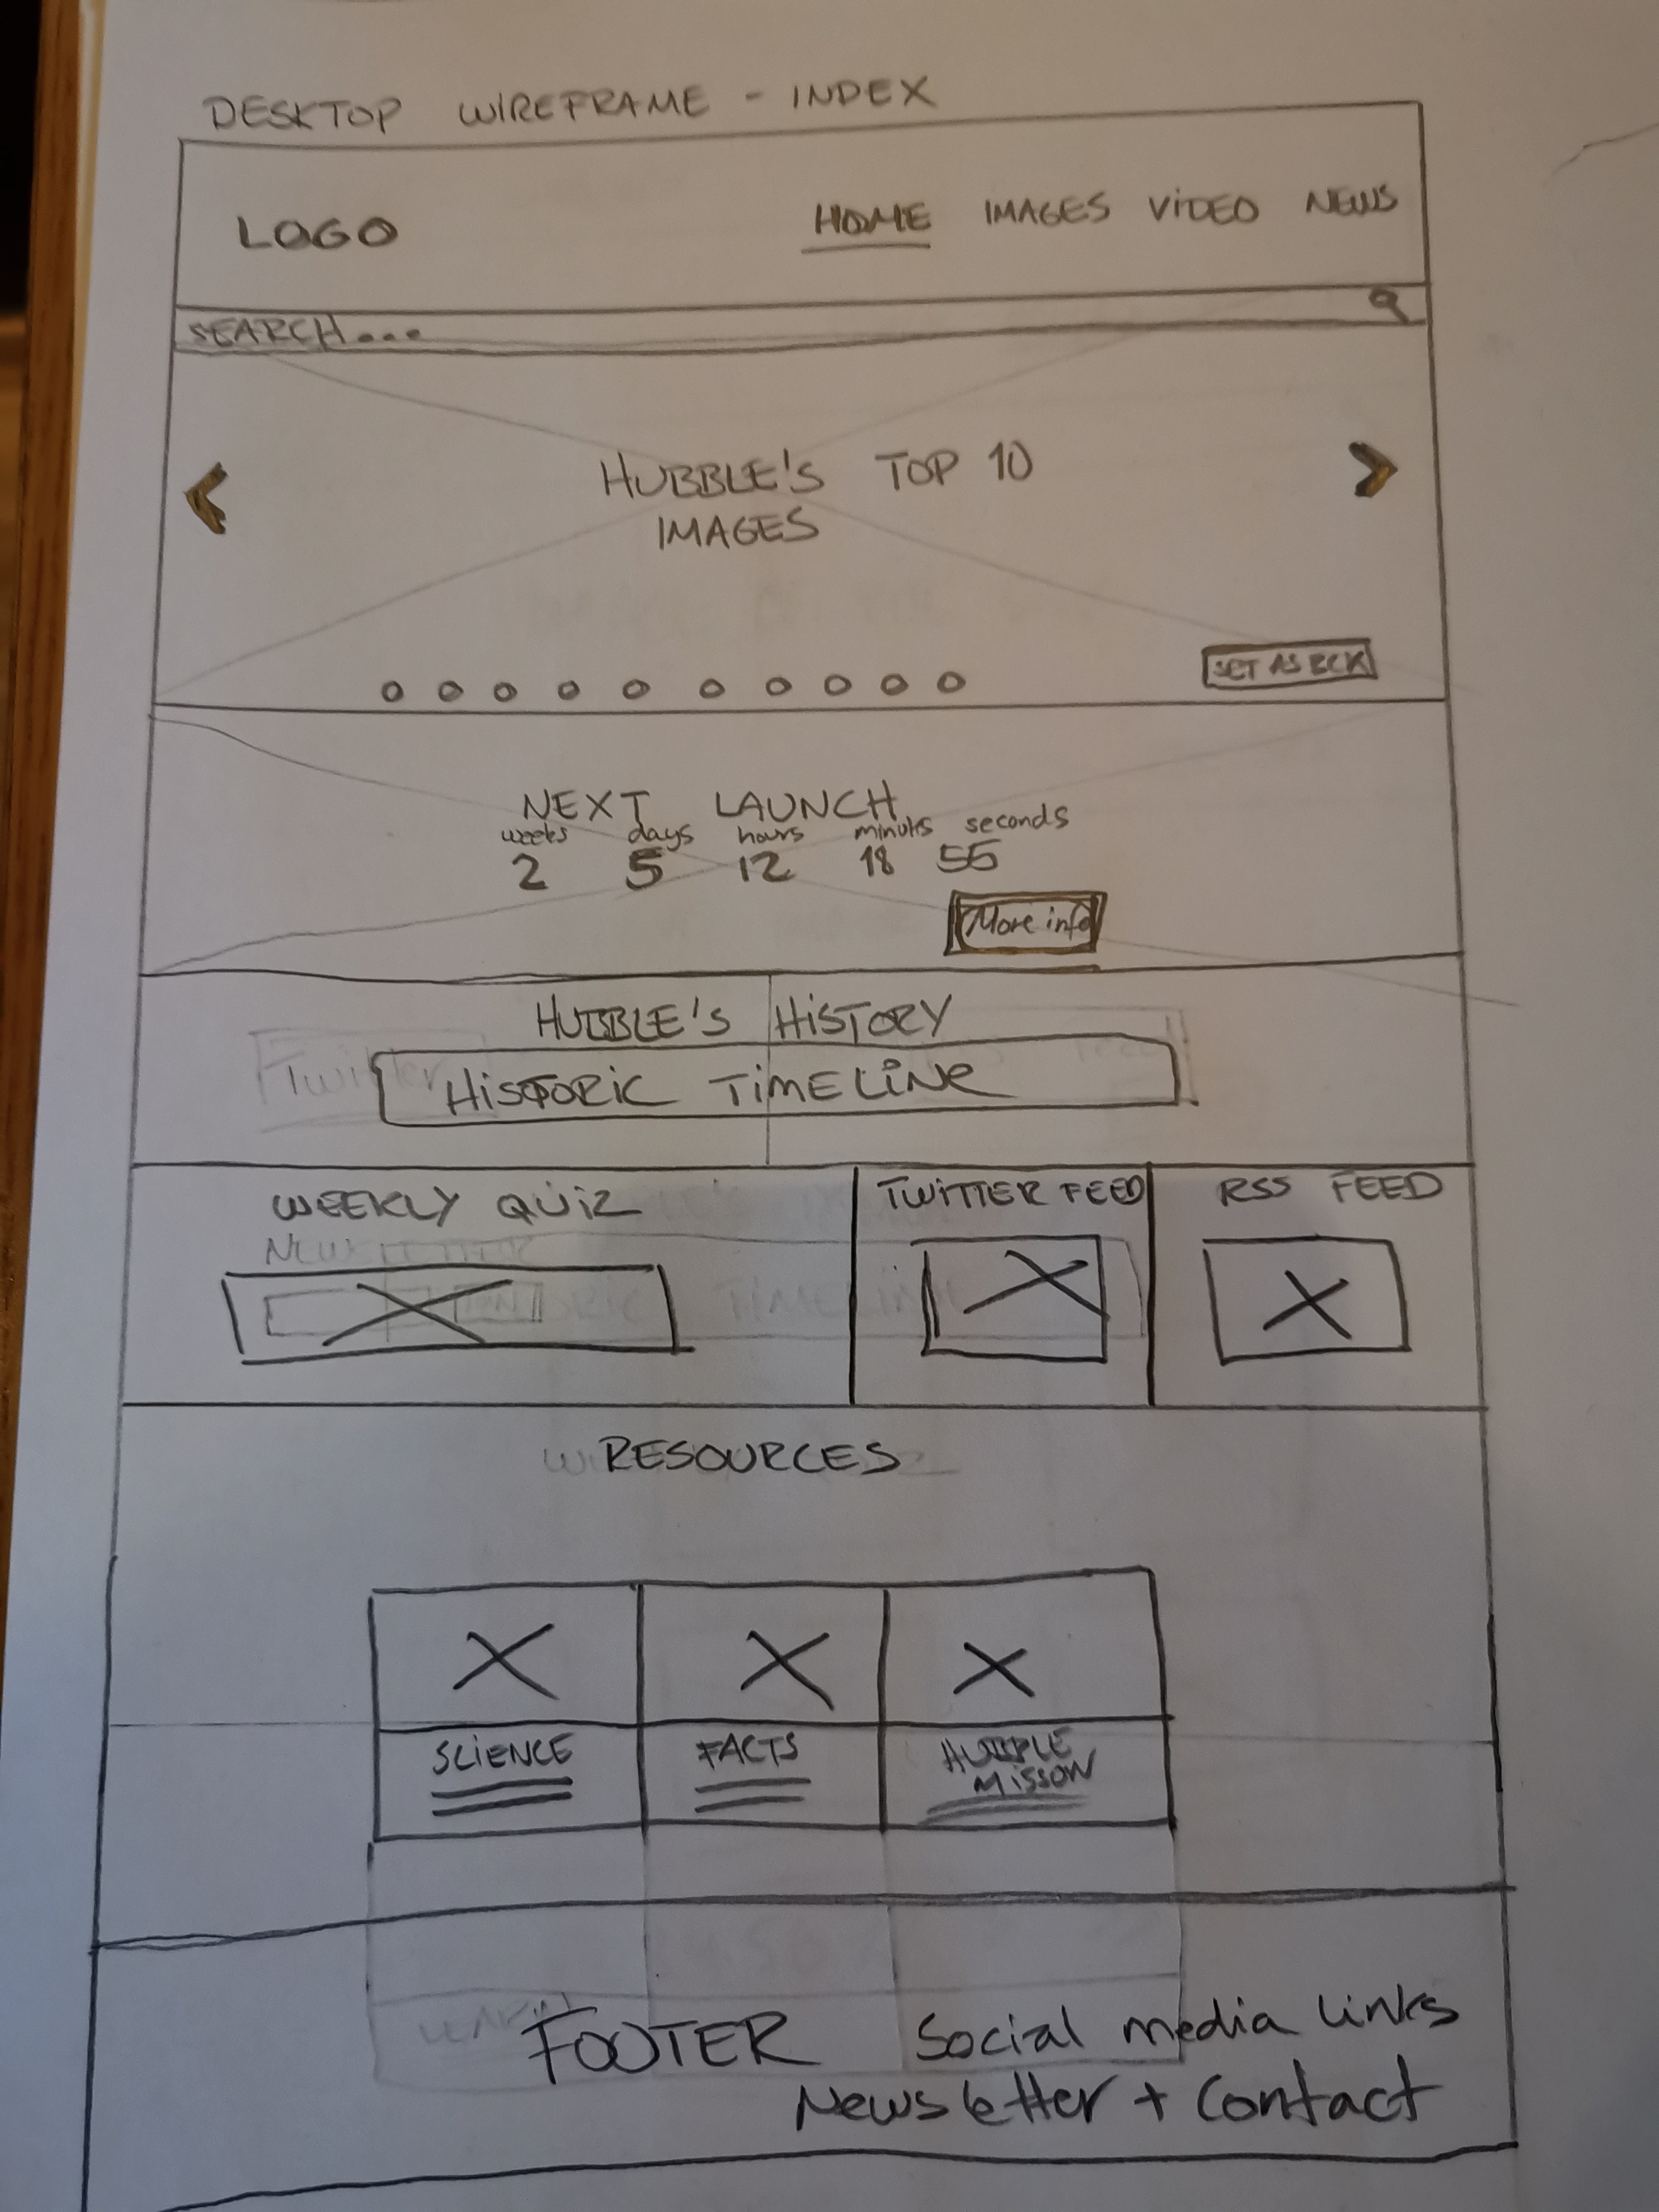 DESKTOP WIREFRAME - INDEX
LOGO HOME IMAGES VIDEO NEWS
SEARCH...
HUBBLE'S TOP 10
IMAGES
SET AS BCK
NEXT LAUNCH
weeks days hours minuts seconds
2 5 12 18 55
More info
HUBBLE'S HISTORY
Twitter
HISTORIC TIMELINE
WEEKLY QUIZ TWITTER FEED RSS FEED
NEWSLETTER
RESOURCES
SCIENCE FACTS HUBBLE
MISSON
FOOTER Social media links
Newsletter + Contact